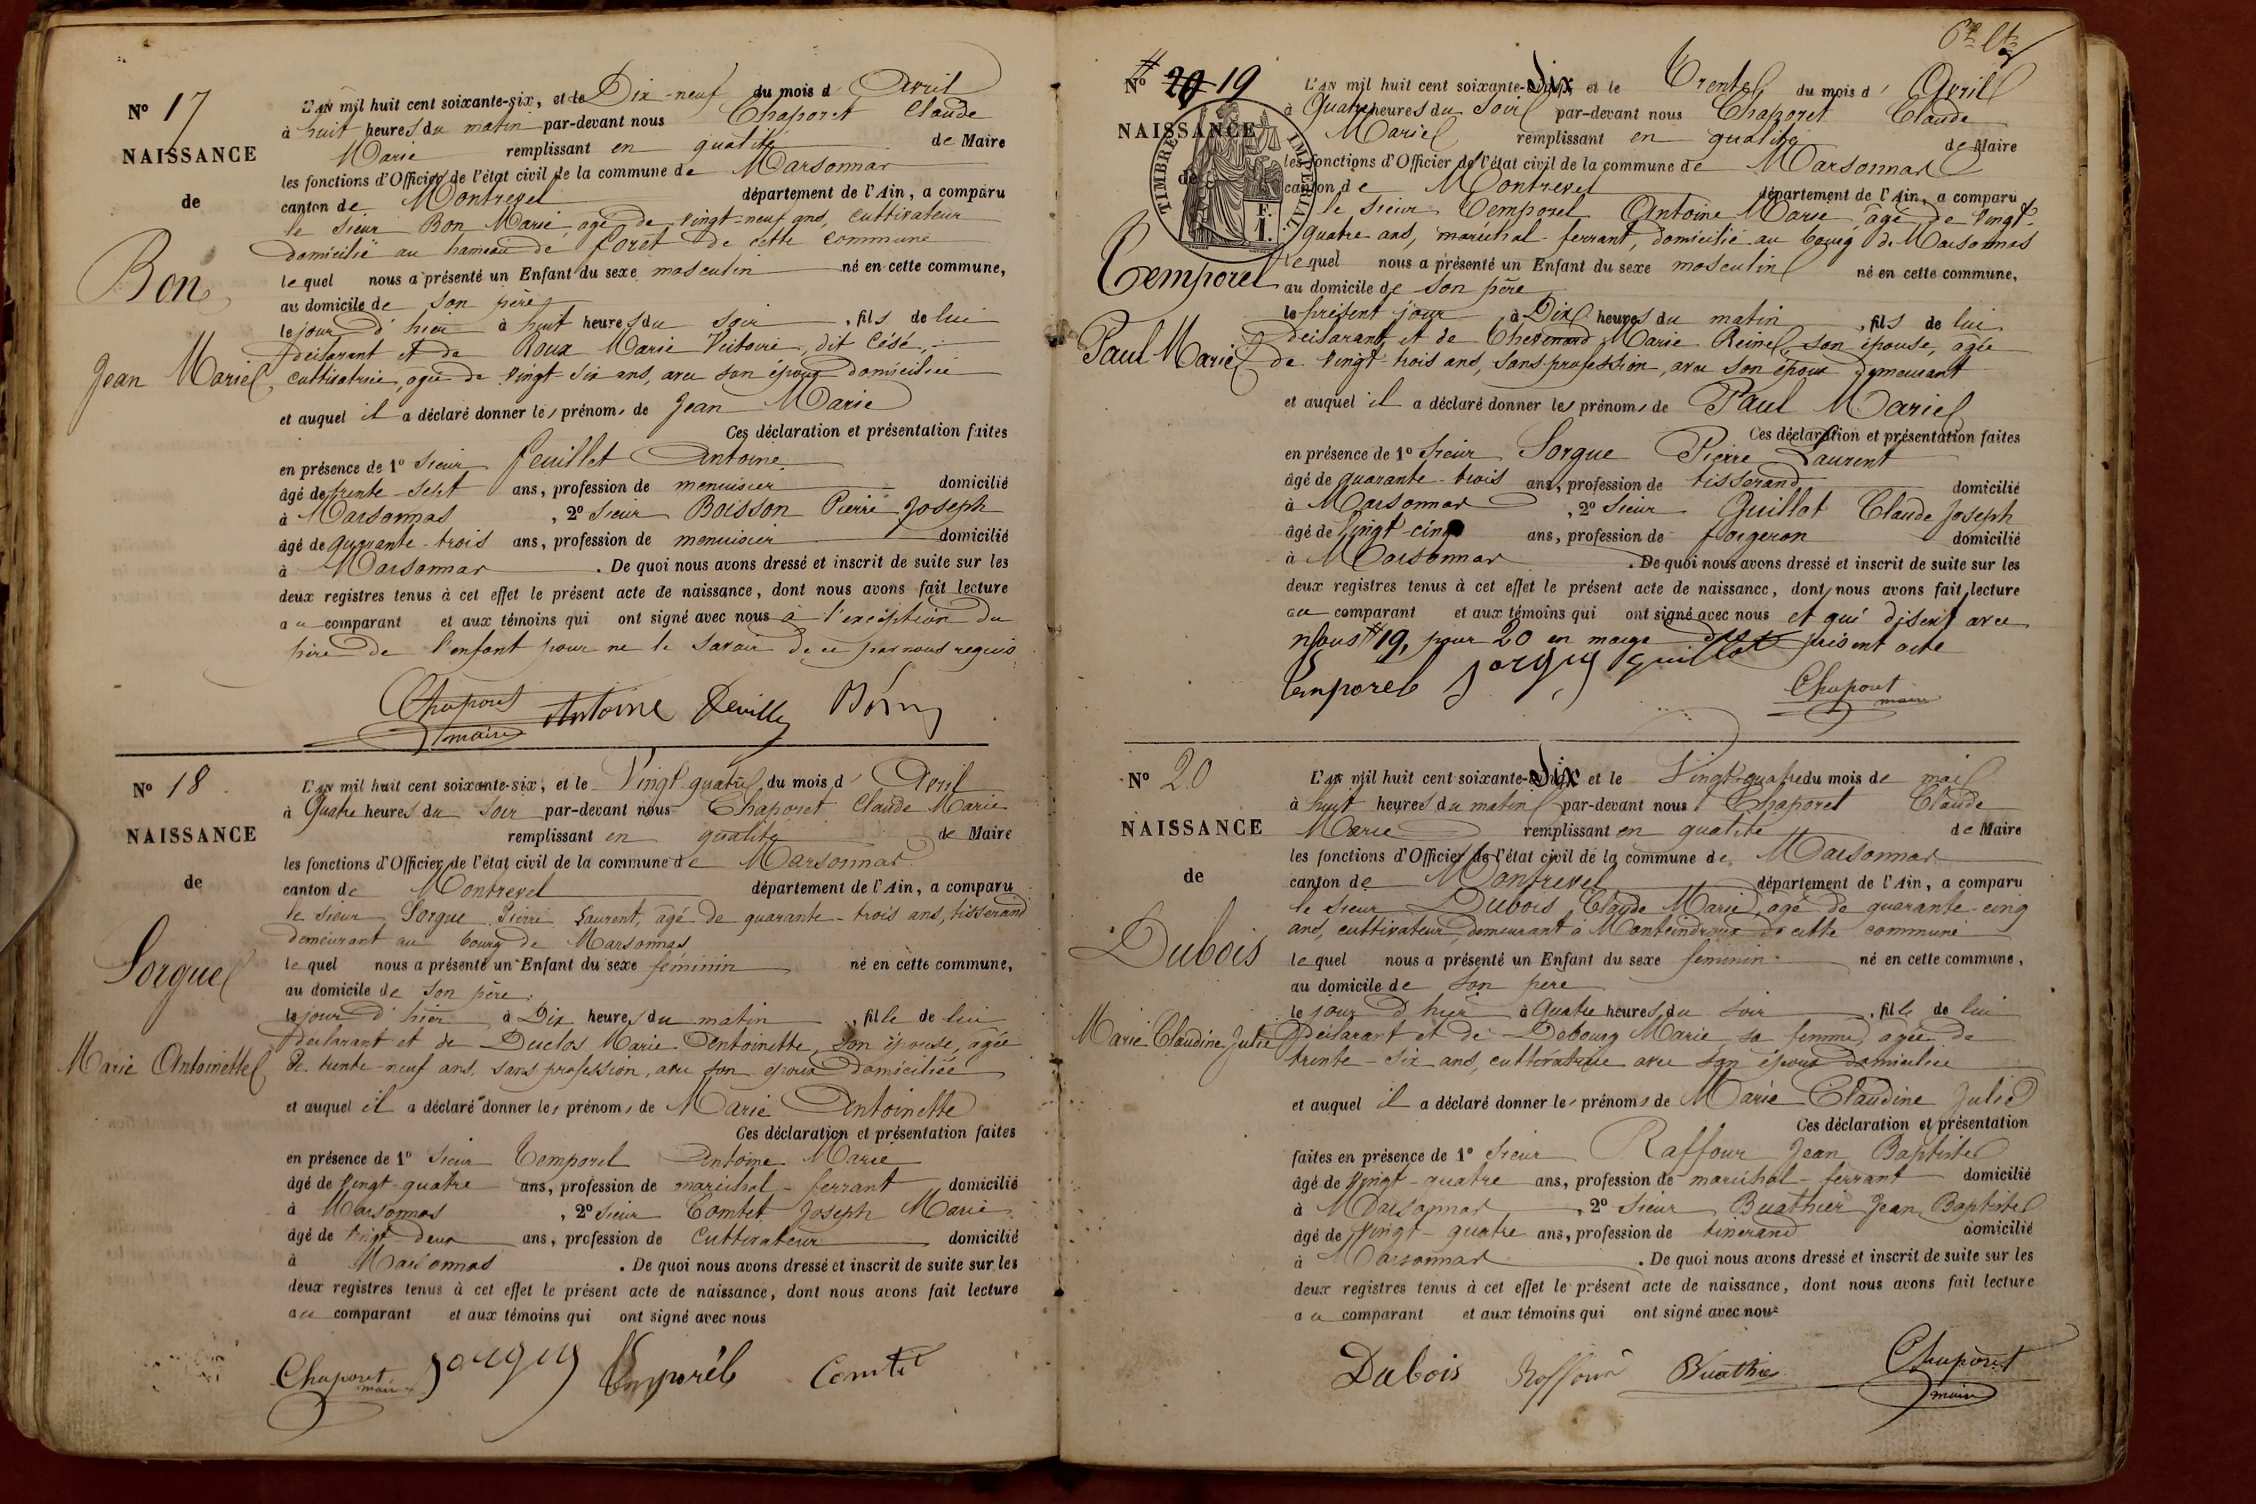 N° 17
NAISSANCE
de
Bon
Jean Marie
L'AN mil huit cent soixante-six, et le Dix-neuf du mois d'Avril
à huit heures du matin par-devant nous Chaporet Claude
Marie remplissant en qualité de Maire
les fonctions d'Officier de l'état civil de la commune de Marsonnas
canton de Montrevel département de l'Ain, a comparu
le sieur Bon Marie, agé de vingt-neuf ans, cultivateur
domicilié au hameau de foret de cette commune
lequel nous a présenté un Enfant du sexe masculin né en cette commune,
au domicile de son père
le jour d'hier à huit heures du soir, fils de lui
déclarant et de Roux Marie Victoire, dit Césé,
cultivatrice, agée de vingt-six ans, avec son époux domiciliée
et auquel il a déclaré donner les prénoms de Jean Marie
Ces déclaration et présentation faites
en présence de 1° sieur feuillet Antoine
âgé de trente-sept ans, profession de menuisier domicilié
à Marsonnas, 2° sieur Boisson Pierre Joseph
âgé de quarante-trois ans, profession de menuisier domicilié
à Marsonnas. De quoi nous avons dressé et inscrit de suite sur les
deux registres tenus à cet effet le présent acte de naissance, dont nous avons fait lecture
au comparant et aux témoins qui ont signé avec nous à l'exception du
père de l'enfant pour ne le savoir de ce par nous requis
Chaporet maire Antoine
N° 18
NAISSANCE
de
Sorgue
Marie Antoinette
L'AN mil huit cent soixante-six, et le Vingt quatre du mois d'Avril
à Quatre heures du soir par-devant nous Chaporet Claude Marie
remplissant en qualité de Maire
les fonctions d'Officier de l'état civil de la commune de Marsonnas
canton de Montrevel département de l'Ain, a comparu
le sieur Sorgue Pierre Laurent, agé de quarante-trois ans, tisserand
demeurant au bourg de Marsonnas
lequel nous a présenté un Enfant du sexe féminin né en cette commune,
au domicile de son père
le jour d'hier à Dix heures du matin, fille de lui
déclarant et de Duclos Marie Antoinette, son épouse, agée
de trente-neuf ans, sans profession, avec son époux domiciliée
et auquel il a déclaré donner les prénoms de Marie Antoinette
Ces déclaration et présentation faites
en présence de 1° sieur Temporel Antoine Marie
âgé de vingt-quatre ans, profession de maréchal-ferrant domicilié
à Marsonnas, 2° sieur Comtet Joseph Marie
âgé de vingt-deux ans, profession de cultivateur domicilié
à Marsonnas. De quoi nous avons dressé et inscrit de suite sur les
deux registres tenus à cet effet le présent acte de naissance, dont nous avons fait lecture
au comparant et aux témoins qui ont signé avec nous
Chaporet maire Sorgue Temporel Comtet
N° 20 19
NAISSANCE
de
TIMBRE IMPERIAL
F. 1.
Temporel
Paul Marie
L'AN mil huit cent soixante-six et le Trente du mois d'Avril
à Quatre heures du soir par-devant nous Chaporet Claude
Marie remplissant en qualité de Maire
les fonctions d'Officier de l'état civil de la commune de Marsonnas
canton de Montrevel département de l'Ain, a comparu
le sieur Temporel Antoine Marie, âgé de vingt-
quatre ans, maréchal-ferrant, domicilié au bourg de Marsonnas
lequel nous a présenté un Enfant du sexe masculin né en cette commune,
au domicile de son père
le présent jour à Dix heures du matin, fils de lui
déclarant, et de Chevenard Marie Reine, son épouse, agée
de vingt-trois ans, sans profession, avec son époux demeurant
et auquel il a déclaré donner les prénoms de Paul Marie
Ces déclaration et présentation faites
en présence de 1° sieur Sorgue Pierre Laurent
âgé de quarante-trois ans, profession de tisserand domicilié
à Marsonnas, 2° sieur Guillot Claude Joseph
âgé de vingt-cinq ans, profession de forgeron domicilié
à Marsonnas. De quoi nous avons dressé et inscrit de suite sur les
deux registres tenus à cet effet le présent acte de naissance, dont nous avons fait lecture
au comparant et aux témoins qui ont signé avec nous et qui disent avec
nous # 19, pour 20 en marge acte
Temporel Sorgue Guillot Chaporet maire
N° 20
NAISSANCE
de
Dubois
Marie Claudine Julie
L'AN mil huit cent soixante-six et le Vingt-quatre du mois de mai
à huit heures du matin par-devant nous Chaporet Claude
Marie remplissant en qualité de Maire
les fonctions d'Officier de l'état civil de la commune de Marsonnas
canton de Montrevel département de l'Ain, a comparu
le sieur Dubois Claude Marie, agé de quarante-cinq
ans, cultivateur, demeurant à Monteindroux de cette commune
lequel nous a présenté un Enfant du sexe feminin né en cette commune,
au domicile de son père
le jour d'hier à Quatre heures du soir, fille de lui
déclarant et de Debourg Marie, sa femme, agée de
trente-six ans, cultivatrice avec son époux domiciliée
et auquel il a déclaré donner les prénoms de Marie Claudine Julie
Ces déclaration et présentation
faites en présence de 1° sieur Raffour Jean Baptiste
âgé de vingt-quatre ans, profession de maréchal-ferrant domicilié
à Marsonnas, 2° sieur Buathier Jean Baptiste
âgé de vingt-quatre ans, profession de tisserand domicilié
à Marsonnas. De quoi nous avons dressé et inscrit de suite sur les
deux registres tenus à cet effet le présent acte de naissance, dont nous avons fait lecture
au comparant et aux témoins qui ont signé avec nous
Dubois Raffour Buathier Chaporet maire